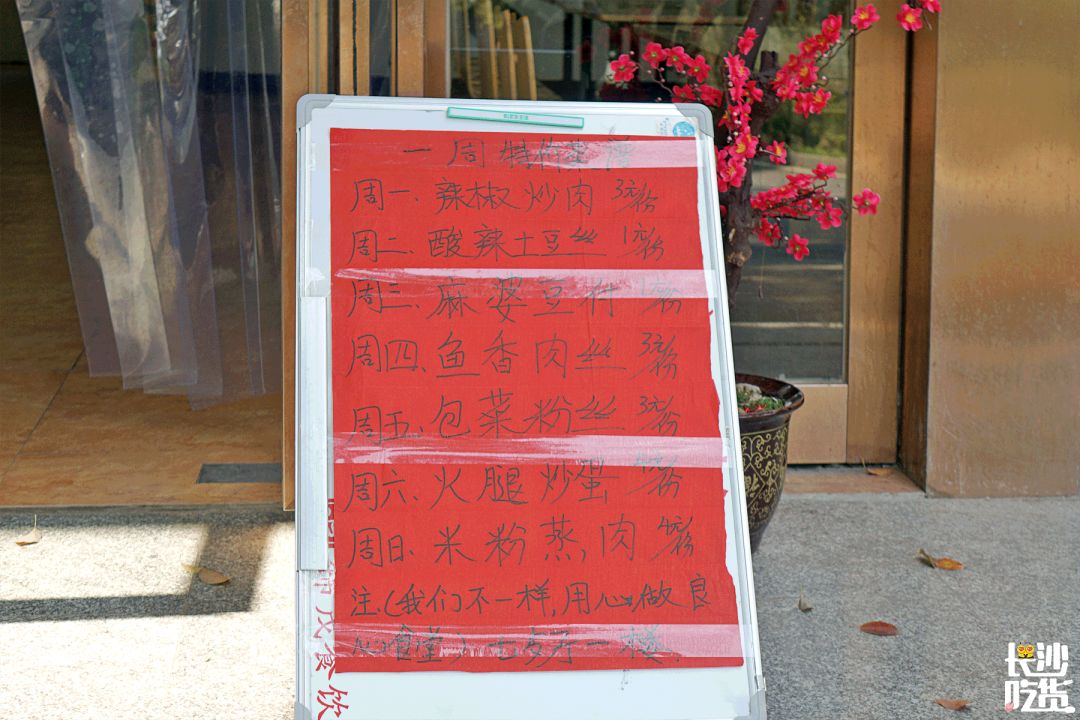 一周特价
周一、辣椒炒肉 3元/份
周二、酸辣土豆丝 1元/份
周三、麻婆豆付 1元/份
周四、鱼香肉丝 3元/份
周五、包菜粉丝 3元/份
周六、火腿炒蛋
周日、米粉蒸肉
注、(我们不一样,用心做良
心食堂)
食饮
长沙
吃货